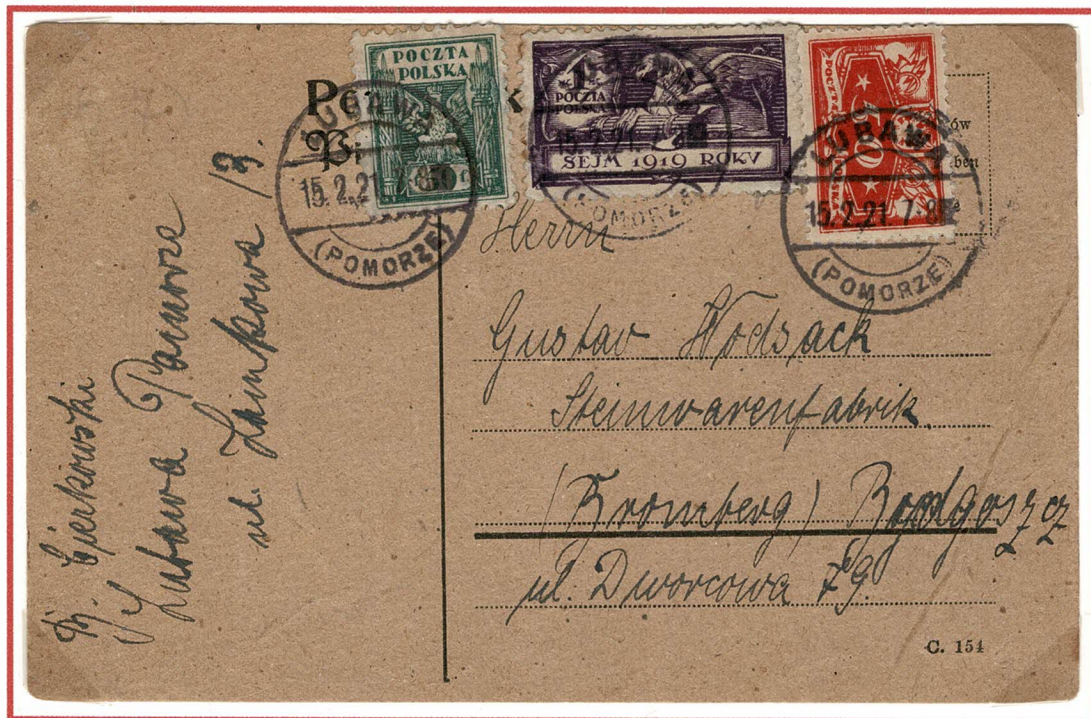 POCZTA
POLSKA
50
1
POCZTA
POLSKA
SEJM 1919 ROKV
POCZTA
LUBAWA
15.2.21. 7-8
(POMORZE)
LUBAWA
15.2.21. 7
(POMORZE)
LUBAWA
15.2.21 7-8
(POMORZE)
Herrn
Gustav Wodsack
Steinwarenfabrik
(Bromberg) Bydgoszcz
ul. Dworcowa 79.
C. 154
Cierkowski
Lubawa Pomorze
ul. Zamkowa 13.